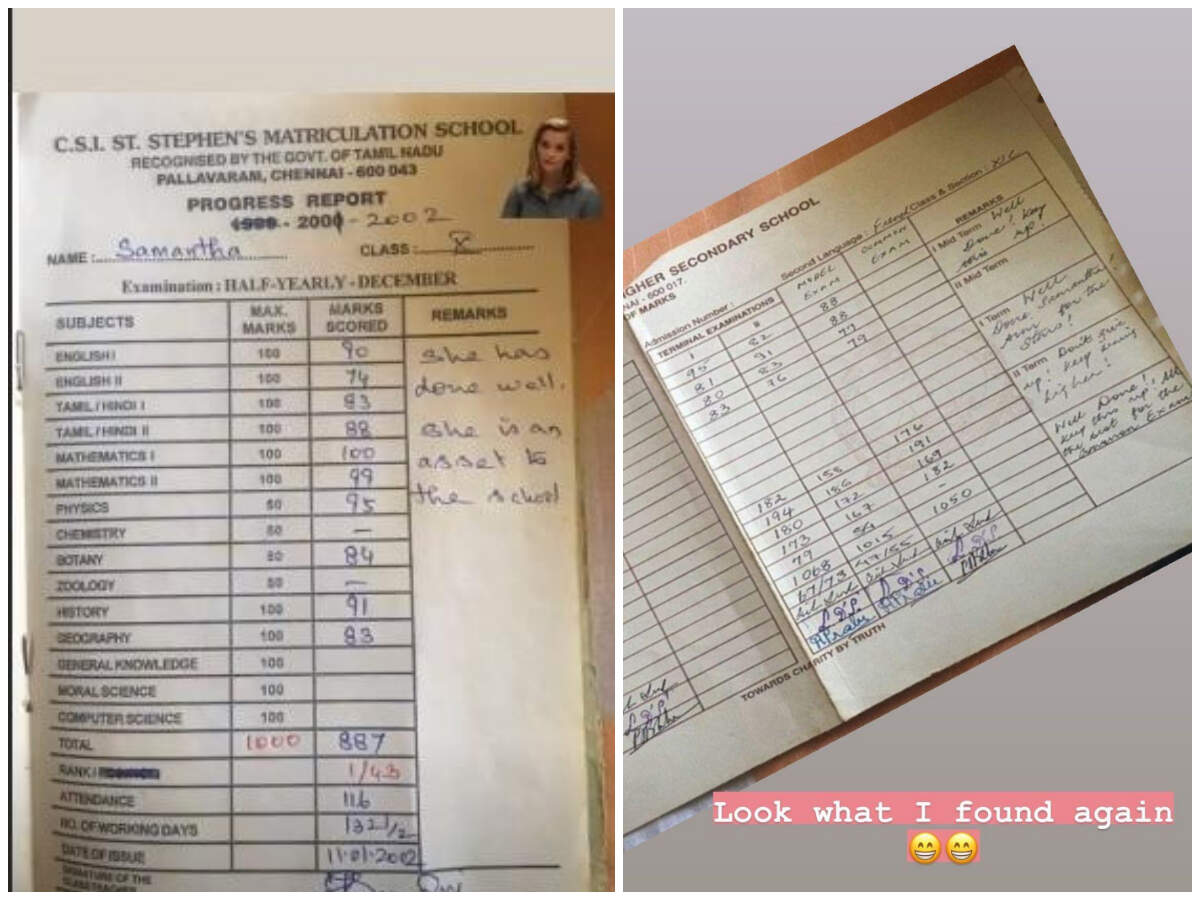 C.S.I. ST. STEPHEN'S MATRICULATION SCHOOL
RECOGNISED BY THE GOVT. OF TAMIL NADU
PALLAVARAM, CHENNAI - 600 043
PROGRESS REPORT
1999 - 2001 - 2002
NAME : Samantha CLASS : X
Examination : HALF-YEARLY - DECEMBER
SUBJECTS MAX. MARKS MARKS SCORED REMARKS
ENGLISH I 100 90
ENGLISH II 100 74
TAMIL / HINDI I 100 83
TAMIL / HINDI II 100 88
MATHEMATICS I 100 100
MATHEMATICS II 100 99
PHYSICS 50 95
CHEMISTRY 50 —
BOTANY 50 84
ZOOLOGY 50 —
HISTORY 100 91
GEOGRAPHY 100 83
GENERAL KNOWLEDGE 100
MORAL SCIENCE 100
COMPUTER SCIENCE 100
TOTAL 1000 887
RANK / 1/43
ATTENDANCE 116
NO. OF WORKING DAYS 132 1/2
DATE OF ISSUE 11.01.2002
SIGNATURE OF THE
She has
done well.
She is an
asset to
the school
HIGHER SECONDARY SCHOOL
NAI - 600 017.
OF MARKS
Admission Number :
Second Language : French Class & Section : XI C
TERMINAL EXAMINATIONS
I II MODEL EXAM COMMON EXAM REMARKS
95 82 88
81 91 88
80 83 77
83 76 79
182 155 176
194 186 191
180 172 169
173 167 182
79 —
1068 1015 1050
67/73
I Mid Term Well
Done! Keep
this up!
II Mid Term
I Term Well
Done, Samantha!
Aim for the
Stars!
II Term Don't give
up! Keep
higher!
Well Done!
Keep this up
the rest for the
Common Exam
TOWARDS CHARITY BY TRUTH
Look what I found again
😁😁